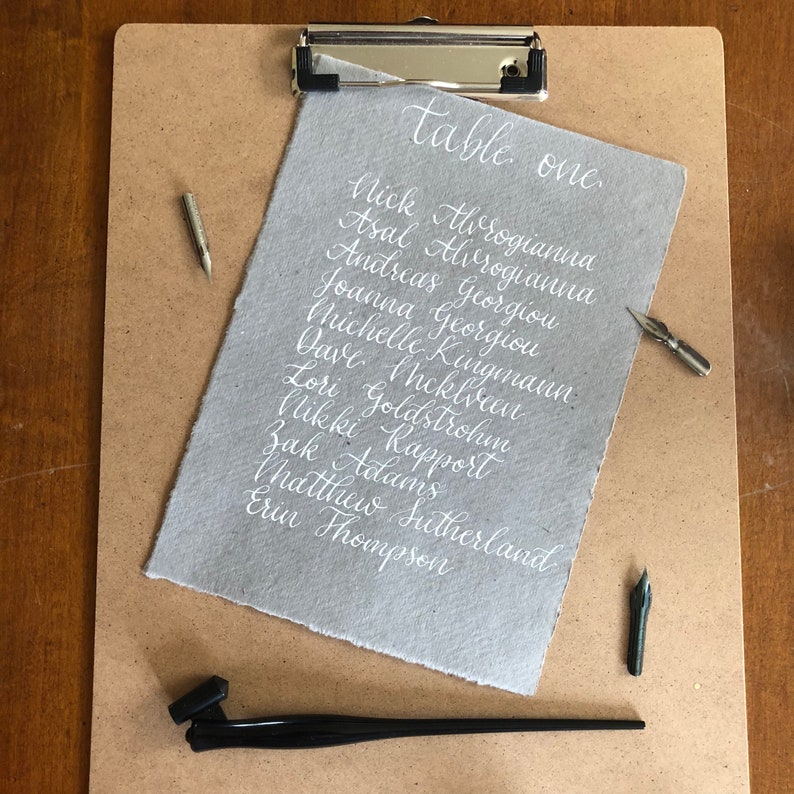 table one
Nick Alvrogianna
Asal Alvrogianna
Andreas Georgiou
Joanna Georgiou
Michelle Kingmann
Dave McKlveen
Lori Goldstrohm
Nikki Rapport
Zak Adams
Matthew Sutherland
Erin Thompson